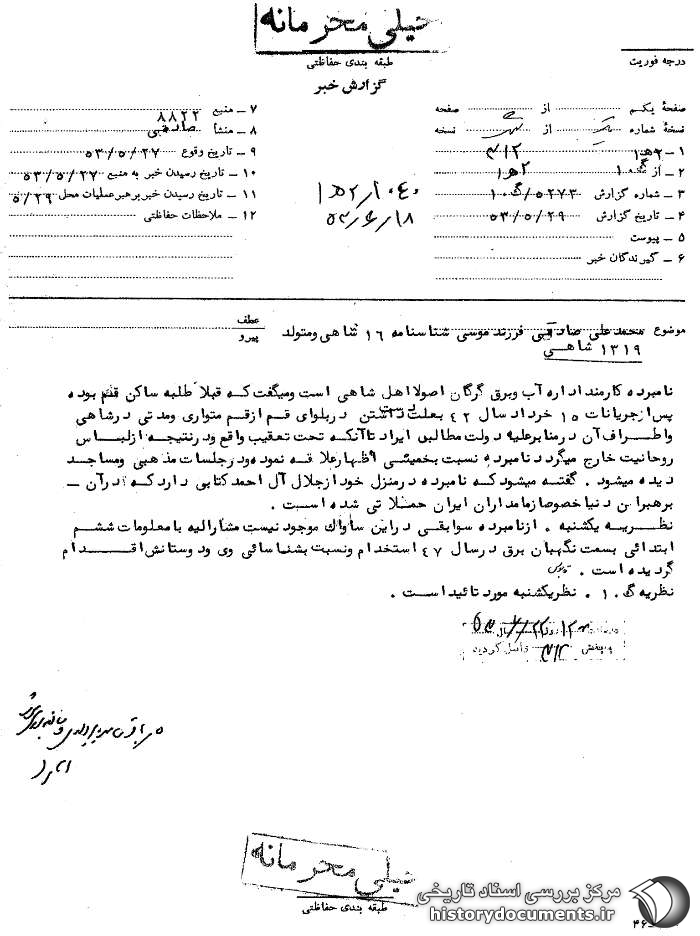 خیلی محرمانه
طبقه بندی حفاظتی
درجه فوریت
گزارش خبر
صفحهٔ یکم از صفحه
نسخهٔ شماره از نسخه
۱ - ۲هـ۱ ۳۱۲
۲ - از گ ۱۰ ۲هـ۱
۳ - شماره گزارش ۵۲۷۳/گ۱۰
۴ - تاریخ گزارش ۵۳/۵/۲۹
۵ - پیوست
۶ - گیرندگان خبر
۷ - منبع ۸۸۲۲
۸ - منشأ صادقی
۹ - تاریخ وقوع ۵۳/۵/۲۷
۱۰ - تاریخ رسیدن خبر به منبع ۵۳/۵/۲۷
۱۱ - تاریخ رسیدن خبر برهبر عملیات محل ۵/۲۹
۱۲ - ملاحظات حفاظتی
موضوع محمدعلی صادقی فرزند موسی شناسنامه ۱۶ شاهی ومتولد
۱۳۱۹ شاهی
عطف
پیرو
نامبرده کارمند اداره آب وبرق گرگان اصولا اهل شاهی است ومیگفت که قبلاً طلبه ساکن قم بوده
پس از جریانات ۱۵ خرداد سال ۴۲ بعلت داشتن دربلوای قم ازقم متواری ومدتی درشاهی
واطراف آن درمنابر علیه دولت مطالبی ایراد تاآنکه تحت تعقیب واقع ودرنتیجه ازلباس
روحانیت خارج میگردد نامبرده نسبت بخمینی اظهارعلاقه نموده ودرجلسات مذهبی ومساجد
دیده میشود . گفته میشود که نامبرده درمنزل خود ازجلال آل احمد کتابی دارد که درآن -
برهبران دنیا خصوصا زمامداران ایران حملاتی شده است .
نظریه یکشنبه . ازنامبرده سوابقی دراین ساواک موجود نیست مشارالیه با معلومات ششم
ابتدائی بسمت نگهبان برق درسال ۴۷ استخدام ونسبت بشناسائی وی ودوستانش اقدام
گردیده است .
نظریه گ ۱۰ . نظریکشنبه مورد تائید است .
بخش ۳۱۲ واصل گردید
خیلی محرمانه
طبقه بندی حفاظتی
مرکز بررسی اسناد تاریخی
historydocuments.ir